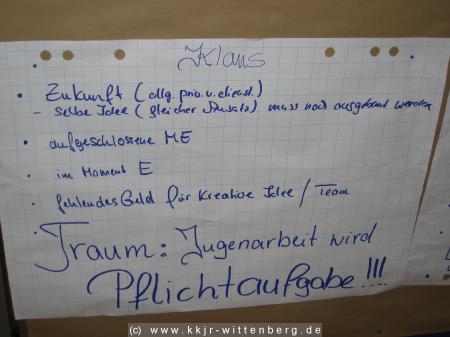 Klaus
• Zukunft (allg. priv. u. dienst.)
- selbe Idee (gleicher Ansatz) muss noch ausgebaut werden
• aufgeschlossene ME
• im Moment E
• fehlendes Geld für kreative Idee / Team
• Traum: Jugenarbeit wird
Pflichtaufgabe!!!
(c) www.kkjr-wittenberg.de